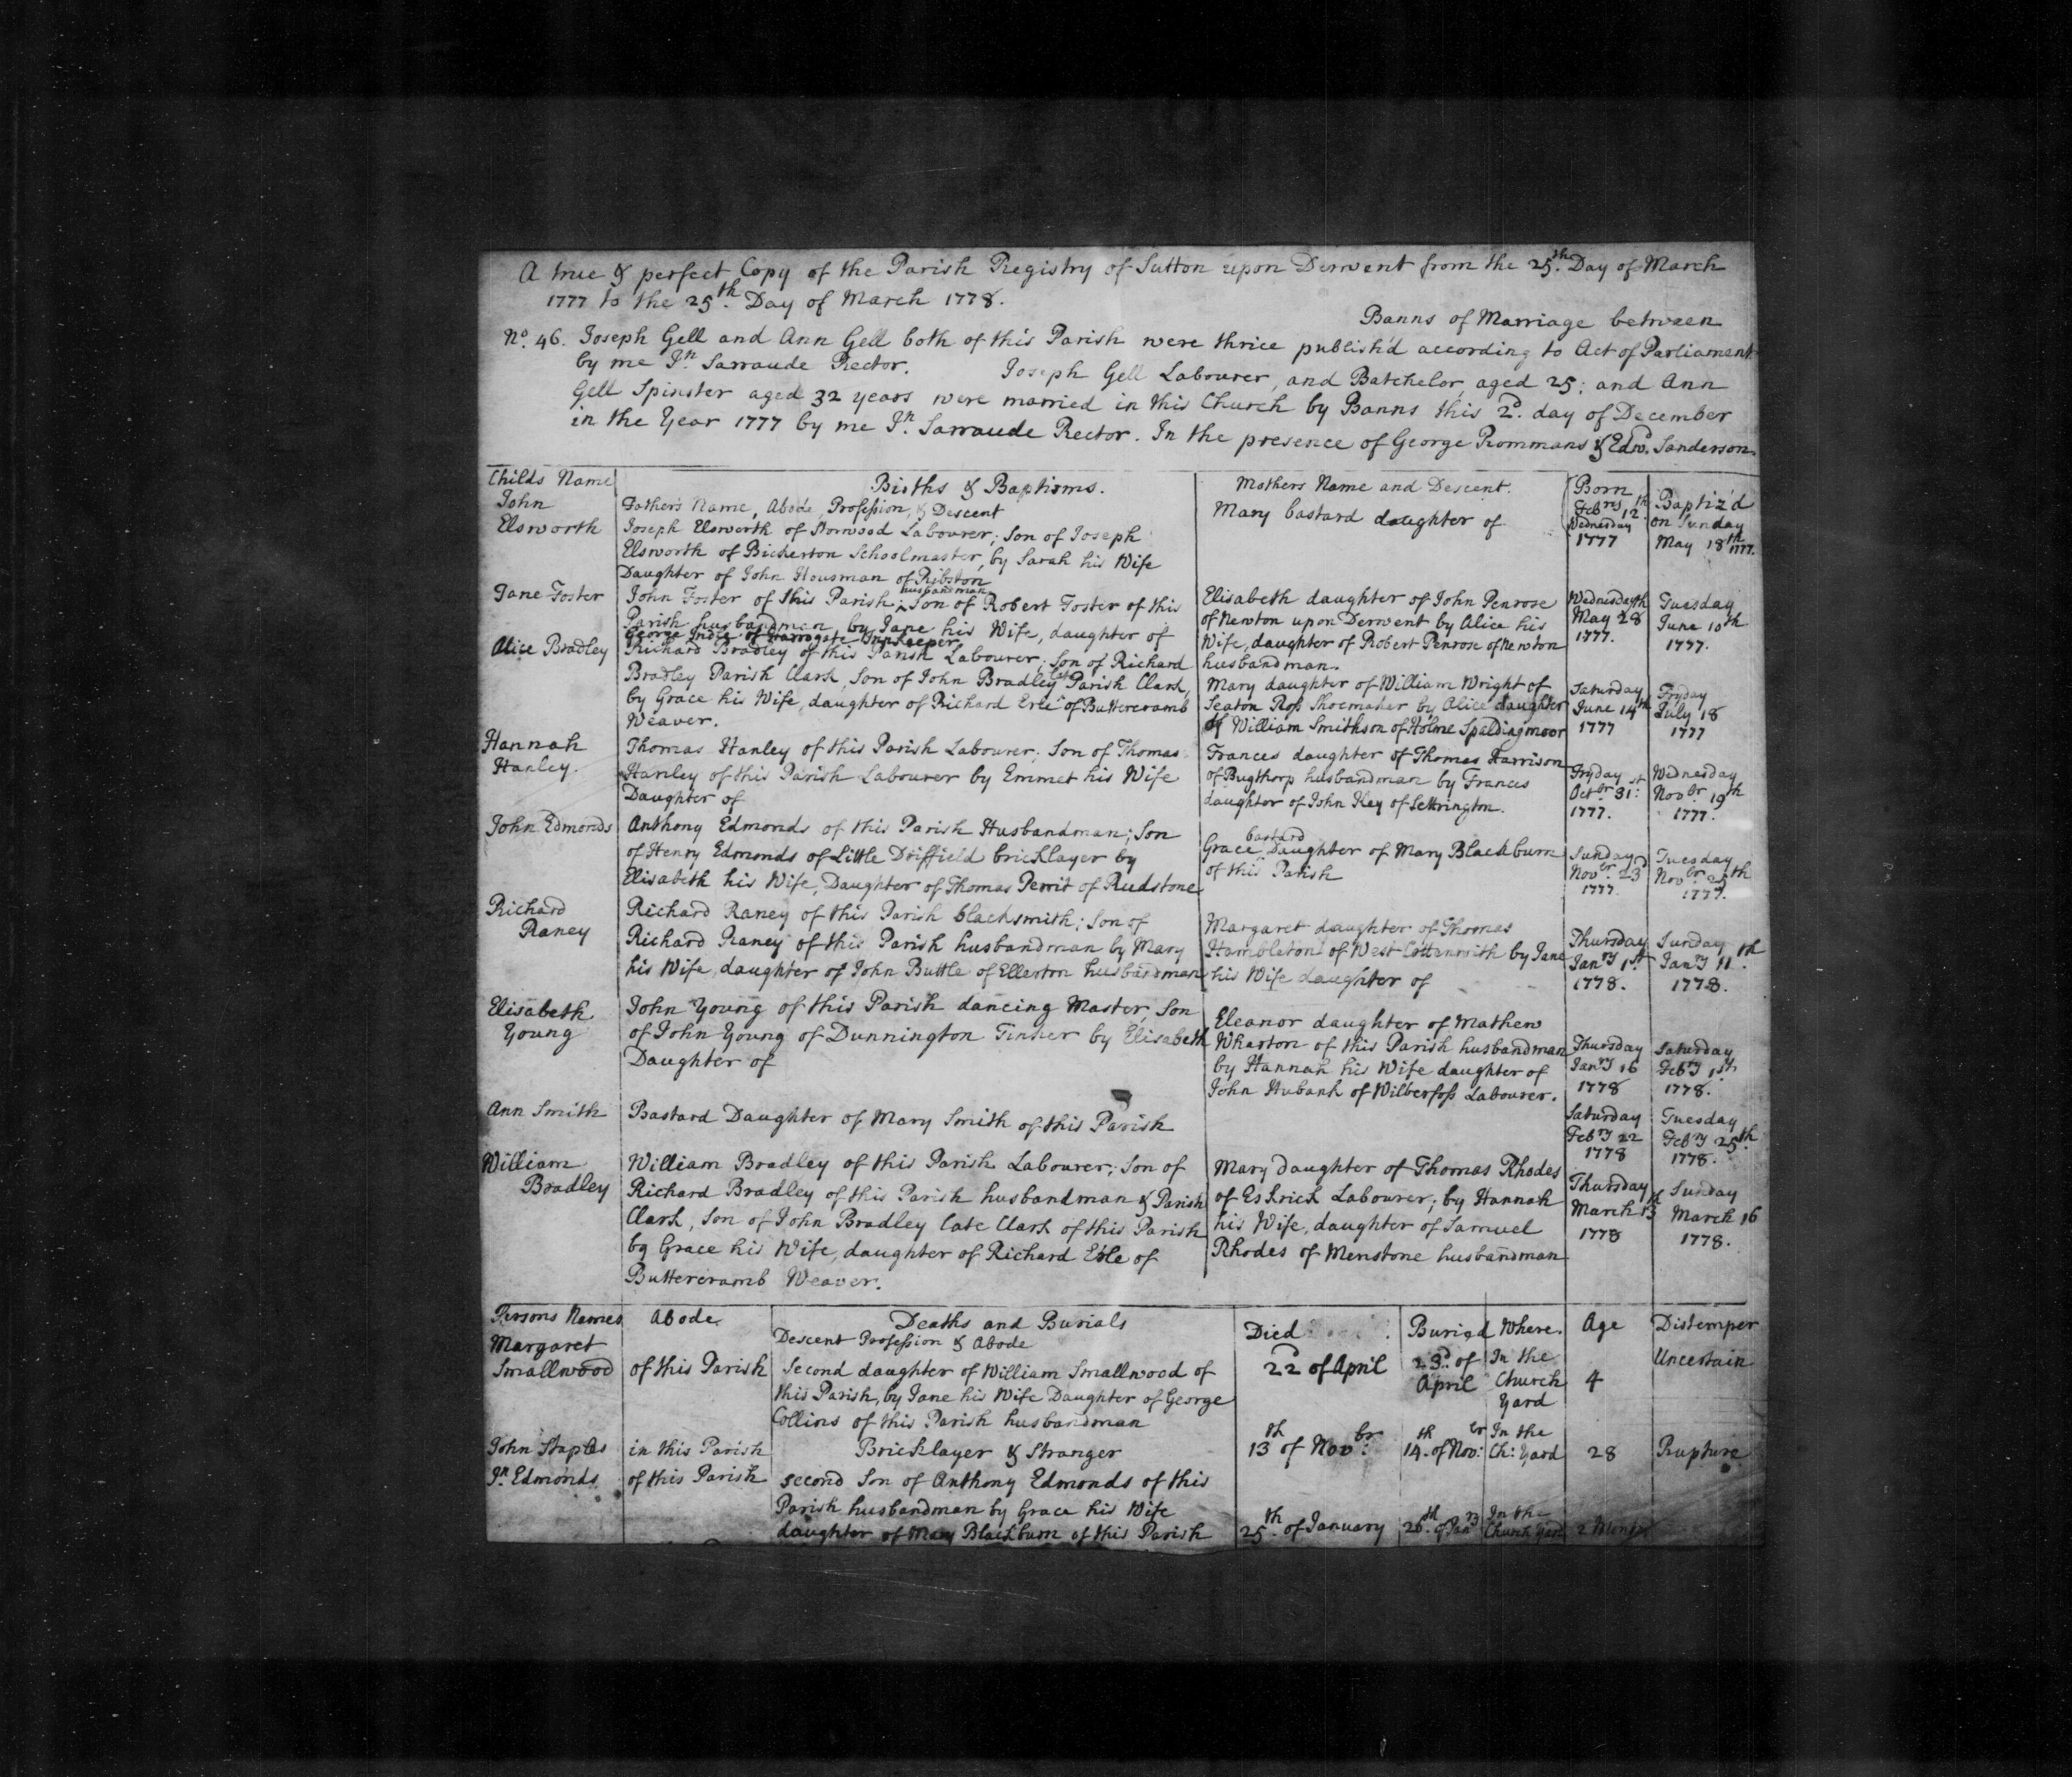 A true & perfect Copy of the Parish Registry of Sutton upon Derwent from the 25th Day of March
1777 to the 25th Day of March 1778.
Banns of Marriage between
No. 46. Joseph Gell and Ann Gell both of this Parish were thrice publish'd according to Act of Parliament
by me Jn. Sarraude Rector. Joseph Gell Labourer, and Batchelor, aged 25; and Ann
Gell Spinster aged 32 years were married in this Church by Banns this 2d. day of December
in the Year 1777 by me Jn. Sarraude Rector. In the presence of George Rommans & Edwd. Sanderson
Childs Name
Births & Baptisms.
Mothers Name and Descent.
Born
Baptiz'd
Fathers Name, Abode, Profession, & Descent
John
Elsworth
Joseph Elsworth of Storwood Labourer; Son of Joseph
Elsworth of Bickerton Schoolmaster, by Sarah his Wife
Daughter of John Housman of Ribston
Mary bastard daughter of
Febry 12th
Wednesday
1777
on Sunday
May 18th 1777.
Jane Foster
husbandman
John Foster of this Parish; Son of Robert Foster of this
Parish husbandman, by Jane his Wife, daughter of
George Indie of Harrogate Innkeeper
Elisabeth daughter of John Penrose
of Newton upon Derwent by Alice his
Wife, daughter of Robert Penrose of Newton
husbandman.
Wednesday
May 28th
1777.
Tuesday
June 10th
1777.
Alice Bradley
Richard Bradley of this Parish Labourer; Son of Richard
Bradley Parish Clark, Son of John Bradley late Parish Clark,
by Grace his Wife, daughter of Richard Erle of Buttercramb
Weaver.
Mary daughter of William Wright of
Seaton Ross Shoemaker by Alice daughter
of William Smithson of Holme Spaldingmoor
Saturday
June 14th
1777
Fryday
July 18
1777
Hannah
Hanley.
Thomas Hanley of this Parish Labourer; Son of Thomas
Hanley of this Parish Labourer by Emmet his Wife
Daughter of
Frances daughter of Thomas Harrison
of Bugthorp husbandman by Frances
daughter of John Key of Settrington.
Fryday
Octbr 31st
1777.
Wednesday
Novbr 19th
1777.
John Edmonds
Anthony Edmonds of this Parish Husbandman; Son
of Henry Edmonds of Little Driffield bricklayer by
Elisabeth his Wife, Daughter of Thomas Perrit of Rudstone
bastard
Grace Daughter of Mary Blackburn
of this Parish
Sunday
Novbr. 23d
1777.
Tuesday
Novbr 25th
1777.
Richard
Raney
Richard Raney of this Parish blacksmith; Son of
Richard Raney of this Parish husbandman by Mary
his Wife, daughter of John Buttle of Ellerton husbandman
Margaret daughter of Thomas
Hambleton of West Cottenwith by Jane
his Wife daughter of
Thursday
Janry 1st
1778.
Sunday
Janry 11th
1778.
Elisabeth
Young
John Young of this Parish dancing Master, Son
of John Young of Dunnington Tinker by Elisabeth
Daughter of
Eleanor daughter of Mathew
Wharton of this Parish husbandman
by Hannah his Wife daughter of
John Hubank of Wilberfoss Labourer.
Thursday
Janry 16
1778
Saturday
Febry 1st
1778.
Ann Smith
Bastard Daughter of Mary Smith of this Parish
Saturday
Febry 22
1778
Tuesday
Febry 25th
1778.
William
Bradley
William Bradley of this Parish Labourer; Son of
Richard Bradley of this Parish husbandman & Parish
Clark, Son of John Bradley late Clark of this Parish
by Grace his Wife, daughter of Richard Erle of
Buttercramb Weaver.
Mary daughter of Thomas Rhodes
of Eskrick Labourer; by Hannah
his Wife, daughter of Samuel
Rhodes of Menstone husbandman
Thursday
March 13th
1778
Sunday
March 16
1778.
Persons Names
Abode
Deaths and Burials
Descent Profession & Abode
Died
Buried
Where.
Age
Distemper
Margaret
Smallwood
of this Parish
Second daughter of William Smallwood of
this Parish, by Jane his Wife Daughter of George
Collins of this Parish husbandman
22d of April
23d. of
April
In the
Church
Yard
4
Uncertain
John Staples
in this Parish
Bricklayer & Stranger
13th of Novbr:
14th. of Novbr:
In the
Ch: Yard
28
Rupture
Jn. Edmonds
of this Parish
second Son of Anthony Edmonds of this
Parish husbandman by Grace his Wife
daughter of Mary Blackburn of this Parish
25th. of January
26th. of Janry
In the
Church Yard
2 Months